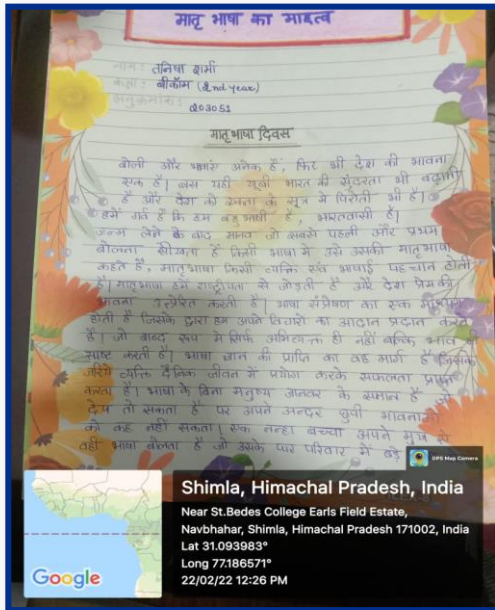 मातृ भाषा का महत्व
नाम : तनिषा शर्मा
कक्षा : बीकॉम (2nd year)
अनुक्रमांक :
203051
मातृभाषा दिवस
बोली और भाषाएं अनेक हैं, फिर भी देश की भावना
एक है। बस यही खूबी भारत की सुंदरता भी बढ़ाती
है और देश को एकता के सूत्र में पिरोती भी है।
हमें गर्व है कि हम बहुभाषी है, भारतवासी है।
जन्म लेने के बाद मानव जो सबसे पहली और प्रथम
बोलना सीखता है किसी भाषा में उसे उसकी मातृभाषा
कहते है, मातृभाषा किसी व्यक्ति एवं भाषाई पहचान होती
है। मातृभाषा हमें राष्ट्रीयता से जोड़ती है और देश प्रेम की
भावना उत्प्रेरित करती है। भाषा संप्रेषण का एक माध्यम
होती है जिसके द्वारा हम अपने विचारों का आदान प्रदान करते
हैं। जो शब्द रूप में सिर्फ अभिव्यक्त ही नहीं बल्कि भाव भी
स्पष्ट करती है। भाषा ज्ञान की प्राप्ति का वह मार्ग है जिसके
जरिये व्यक्ति दैनिक जीवन में प्रयोग करके सफलता प्राप्त
करता है। भाषा के बिना मनुष्य जानवर के समान है जो
देख तो सकता है पर अपने अन्दर छुपी भावनाओं
को कह नहीं सकता। एक नन्हा बच्चा अपने मुख से
वही भाषा बोलता है जो उसके घर परिवार में बड़े
GPS Map Camera
Shimla, Himachal Pradesh, India
Near St.Bedes College Earls Field Estate,
Navbhahar, Shimla, Himachal Pradesh 171002, India
Lat 31.093983°
Long 77.186571°
22/02/22 12:26 PM
Google